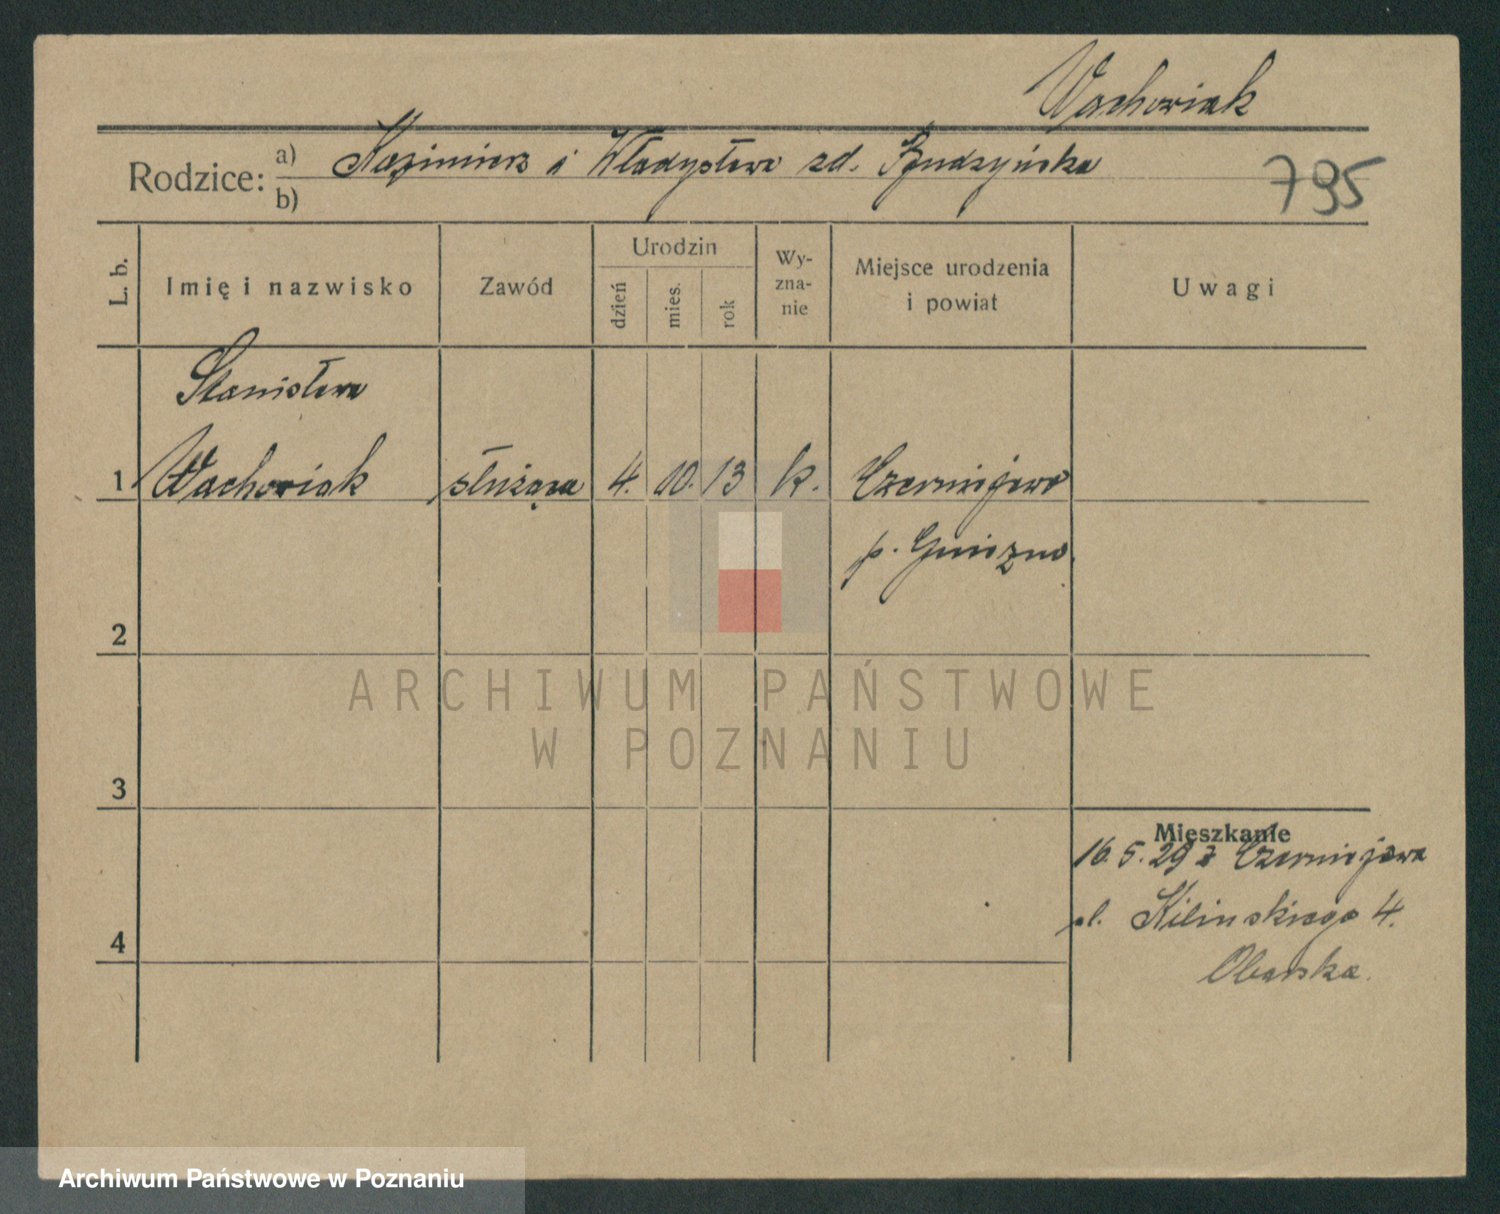 Wachowiak
Rodzice: a) Kazimierz i Władysława zd.
b)
795
L. b.
Imię i nazwisko
Zawód
Urodzin
dzień
mies.
rok
Wy-
zna-
nie
Miejsce urodzenia
i powiat
Uwagi
Stanisława
1 Wachowiak służąca 4. 10. 13 k. Czerniejewo
p. Gniezno.
2
ARCHIWUM PAŃSTWOWE
W POZNANIU
3
Mieszkanie
16.5.29 z Czerniejewa
pl. Kilinskiego 4.
4
Archiwum Państwowe w Poznaniu